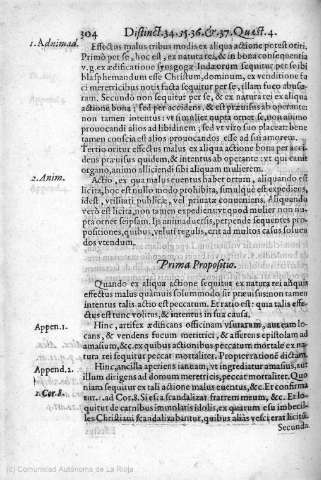 304 Distinct. 34. 35. 36. & 37. Quæst. 4.
1. Adnimad.
Effectus malus tribus modis ex aliqua actione potest oriri,
Primò per se, hoc est, ex natura rei, & in bona consequentia
v. g. ex ædificatione synagogæ Iudæorum sequitur per se ibi
blasphemandum esse Christum, dominum, ex venditione fu
ci meretricibus notis facta sequitur per se, illam fuco abusu-
ram. Secundo non sequitur per se, & ex natura rei ex aliqua
actione bona; sed per accidens, & est præuisus ab operante:
non tamen intentus: vt mulier nupta ornet se, non animo
prouocandi alios ad libidinem, sed vt viro suo placeat: bene
tamen conscia est alios prouocandos esse ad sui amorem.
Tertio oritur effectus malus ex aliqua actione bona per acci
dens præuisus quidem, & intentus ab operante: vt qui canit
organo, animo alliciendi sibi aliquam mulierem.
2. Anim.
Actio, ex qua malus euentus habet ortum, aliquando est
licita, hoc est nullo modo prohibita, simulque est expediens,
idest, vtilitati publicæ, vel priuatæ conueniens. Aliquando
verò est licita, non tamen expediens: vt quod mulier non nu-
pta ornet seipsam. Ijs animaduersis, perpende sequentes pro-
positiones, quibus, veluti regulis, erat ad multos casus solue
dos vtendum.
Prima Propositio.
Quando ex aliqua actione sequitur ex natura rei aliquis
effectus malus quamuis solummodo sit præuisus non tamen
intentus talis actio est peccatum. Et ratio est: quia talis effe-
ctus est tunc volitus, & intentus in sua causa.
Appen. 1.
Hinc, artifex ædificans officinam vsurarum, aut eam lo-
cans, & vendens fucum meretrici, & afferens epistolam ad
amasium, &c. ex quibus actionibus peccatum mortale ex na
tura rei sequitur peccat mortaliter. Propter rationē dictam.
Append. 2.
Hinc, ancilla aperiens ianuam, vt ingrediatur amasius, aut
illum dirigens ad domum meretricis, peccat mortaliter. Quo
niam sequitur ex tali actione malus euentus, &c. Et confirma
1. Cor. 8.
tur. 1. ad Cor. 8. Si esca scandalizat fratrem meum, &c. Et lo-
quitur de carnibus immolatis idolis, ex quarum esu imbecil-
les Christiani scandalizabantur, quibus aliàs vesci erat licitū.
Secunda
(c) Comunidad Autónoma de La Rioja